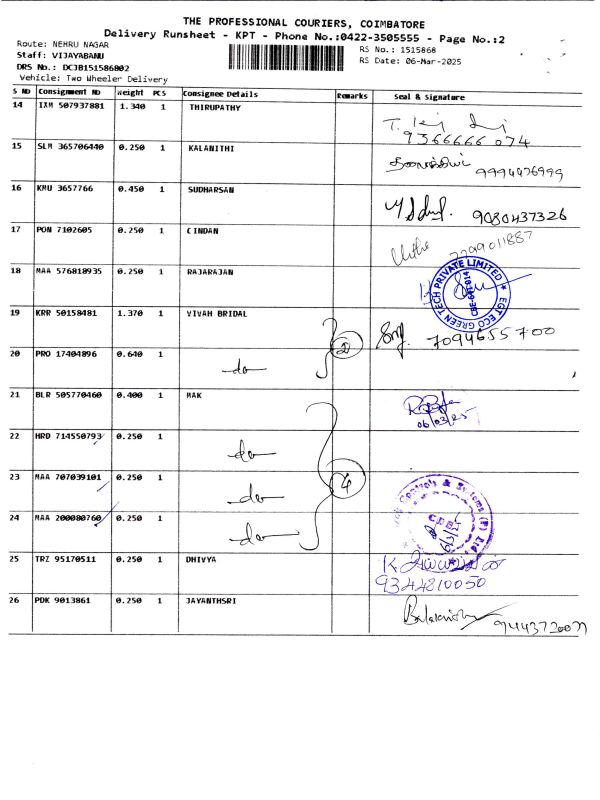 THE PROFESSIONAL COURIERS, COIMBATORE
Delivery Runsheet - KPT - Phone No.:0422-3505555 - Page No.:2
Route: NEHRU NAGAR
Staff: VIJAYABANU
DRS No.: DCJB151586802
Vehicle: Two Wheeler Delivery
RS No.: 1515868
RS Date: 06-Mar-2025
S NO Consignment NO Weight PCS Consignee Details Remarks Seal & Signature
14 IXM 507937881 1.340 1 THIRUPATHY
9366666 074
15 SLM 365706440 0.250 1 KALANITHI
9994476999
16 KMU 3657766 0.450 1 SUDHARSAN
9080437326
17 PON 7102605 0.250 1 CINDAN
7299011887
18 MAA 576818935 0.250 1 RAJARAJAN
EGT ECO GREEN TECH PRIVATE LIMITED
19 KRR 50158481 1.370 1 VIVAH BRIDAL
7094655700
20 PRO 17404896 0.640 1 -do- 2
21 BLR 505770460 0.400 1 MAK
06/03/25
22 HRD 714550793 0.250 1 -do-
23 MAA 707039101 0.250 1 -do- 4
24 MAA 200080760 0.250 1 -do-
Controls & Systems (P) Ltd
25 TRZ 95170511 0.250 1 DHIVYA
9344210050
26 PDK 9013861 0.250 1 JAYANTHSRI